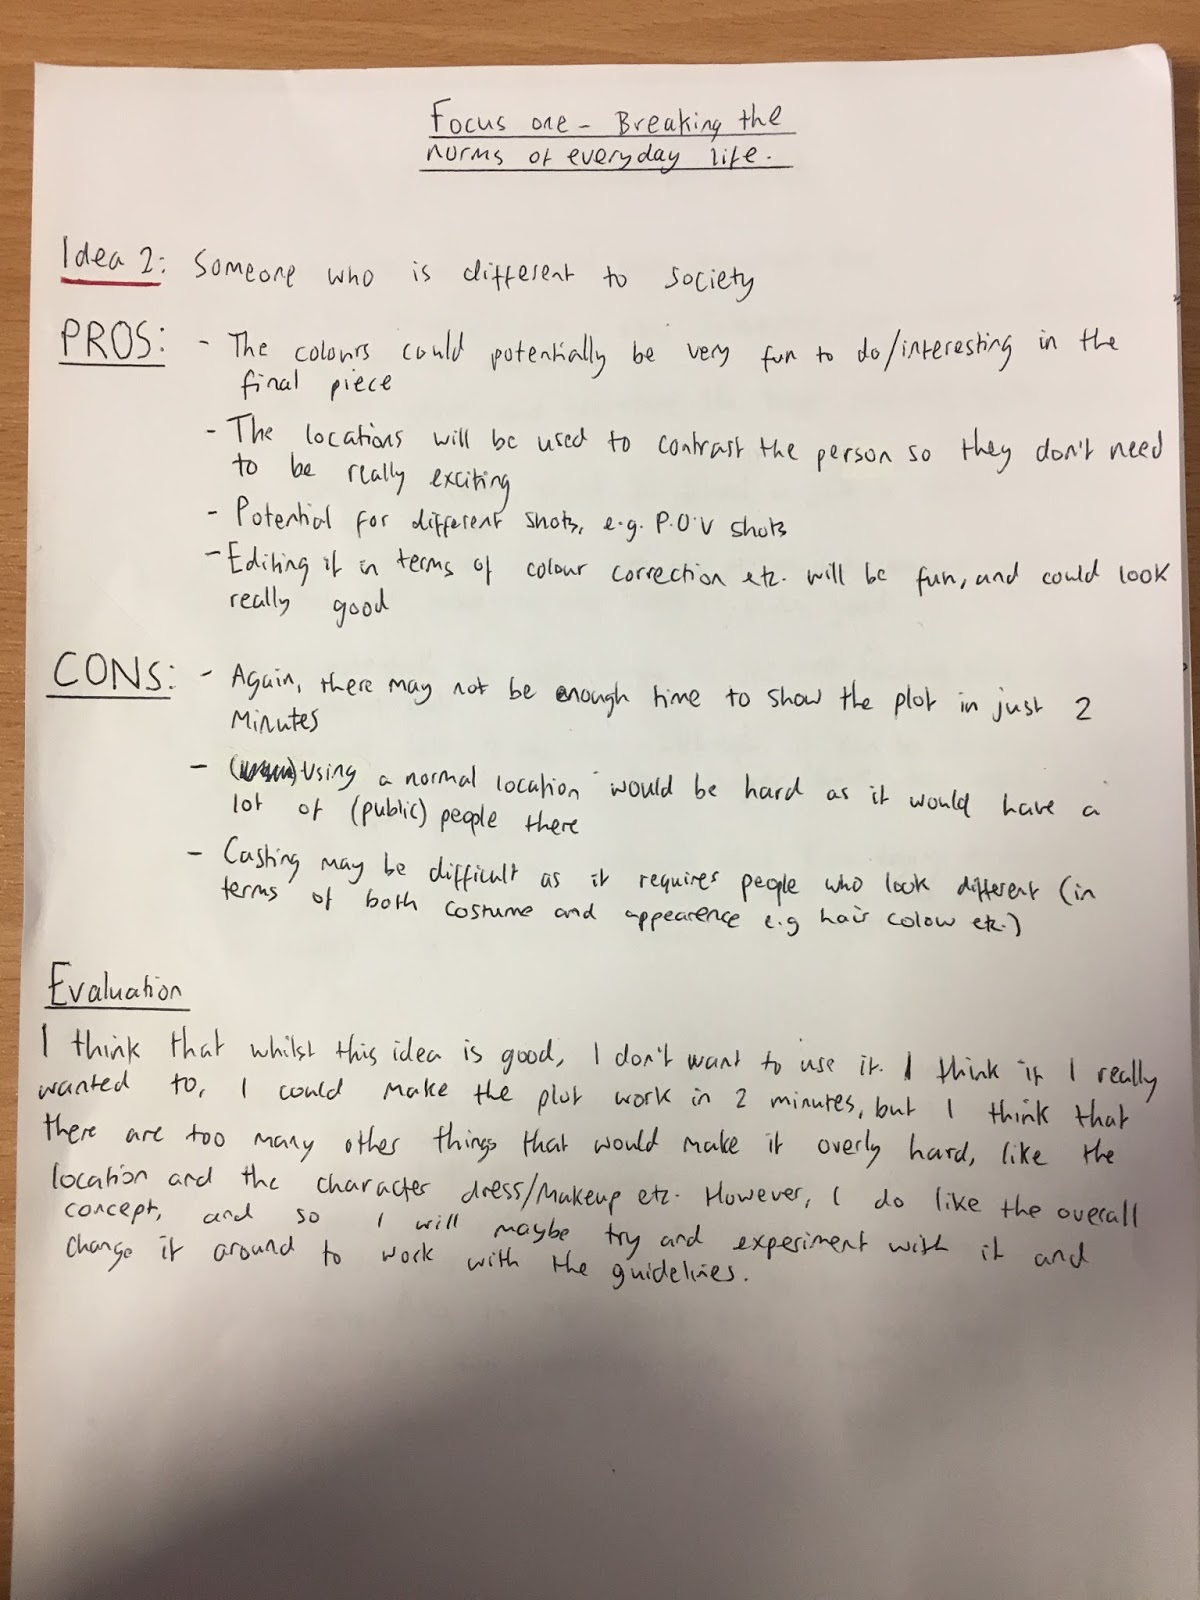 Focus one - Breaking the
norms of everyday life.
Idea 2: Someone who is different to society
PROS: - The colours could potentially be very fun to do/interesting in the
final piece
- The locations will be used to contrast the person so they don't need
to be really exciting
- Potential for different shots, e.g. P.O.V shots
- Editing it in terms of colour correction etc. will be fun, and could look
really good
CONS: - Again, there may not be enough time to show the plot in just 2
minutes
- Using a normal location would be hard as it would have a
lot of (public) people there
- Casting may be difficult as it requires people who look different (in
terms of both costume and appearence e.g hair colour etc.)
Evaluation
I think that whilst this idea is good, I don't want to use it. I think if I really
wanted to, I could make the plot work in 2 minutes, but I think that
there are too many other things that would make it overly hard, like the
location and the character dress/makeup etc. However, I do like the overall
concept, and so I will maybe try and experiment with it and
change it around to work with the guidelines.